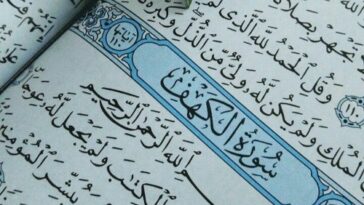 تَجْهَرْ بِصَلَا
وَقُلِ ٱلْحَمْدُ لِلَّهِ ٱلَّذِى لَمْ
ٱلْمُلْكِ وَلَمْ يَكُن لَّهُۥ وَلِىٌّ مِّنَ ٱلذُّلِّ وَكَبِّرْهُ
سُورَةُ الكَهْفِ
آياتها
سْمِ ٱللَّهِ ٱلرَّحْمَٰنِ ٱلرَّحِيمِ
ٱلْكِتَٰبَ وَلَمْ يَجْعَل لَّهُۥ عِوَجَا
يُبَشِّرَ ٱلْمُؤْمِ